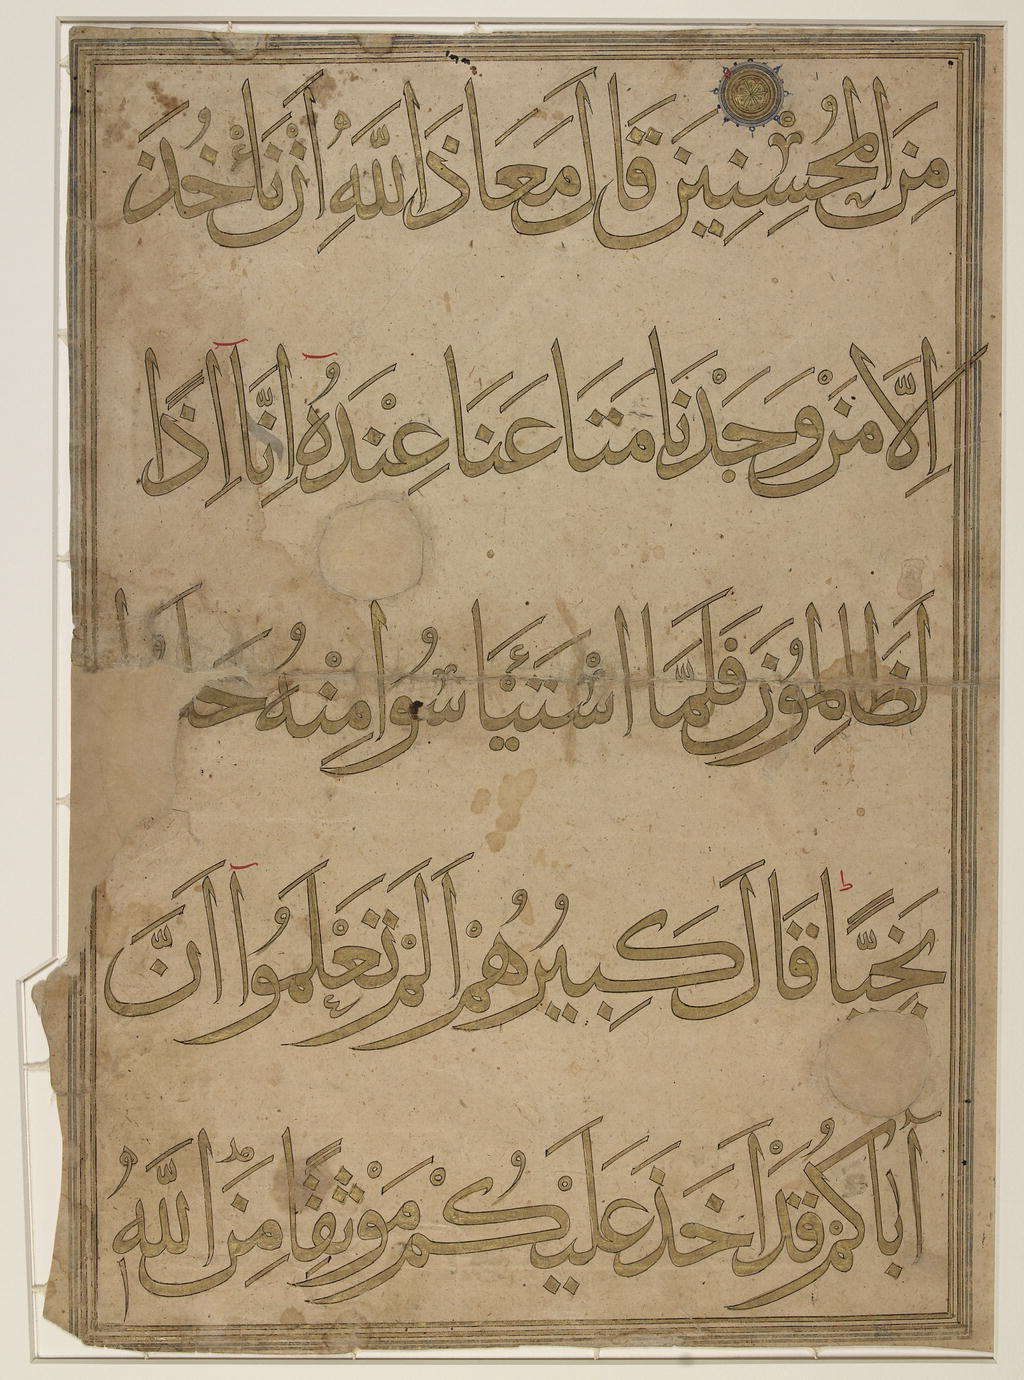 مِنَ الْمُحْسِنِينَ قَالَ مَعَاذَ اللَّهِ أَنْ نَأْخُذَ
اِلَّا مَنْ وَجَدْنَا مَتَاعَنَا عِنْدَهُ اِنَّا اِذًا
لَظَالِمُوْنَ فَلَمَّا اسْتَيْأَسُوا مِنْهُ خَ
نَجِيًّا قَالَ كَبِيرُهُمْ اَلَمْ تَعْلَمُوا اَنَّ
اَبَاكُمْ قَدْ اَخَذَ عَلَيْكُمْ مَوْثِقًا مِنَ اللَّهِ وَ